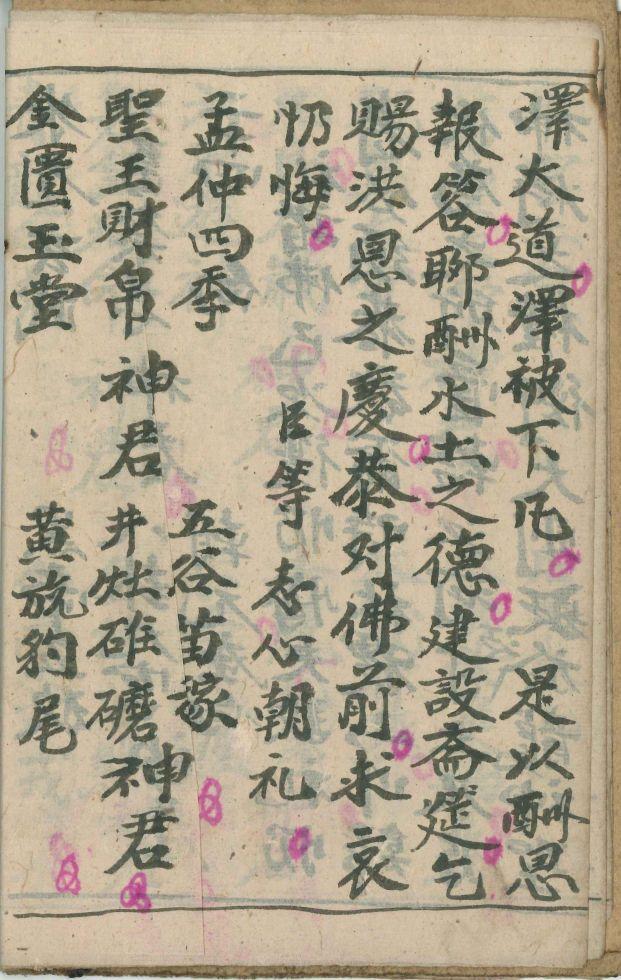 澤大道澤被下凡 是以酬恩
報答聊酬水土之德建設斋筵乞
賜洪恩之慶恭对佛前求哀
忏悔 臣等 志心朝礼
孟仲四季 五谷苗稼
聖王財帛神君 井灶碓磨神君
金匱玉堂 黄旛豹尾